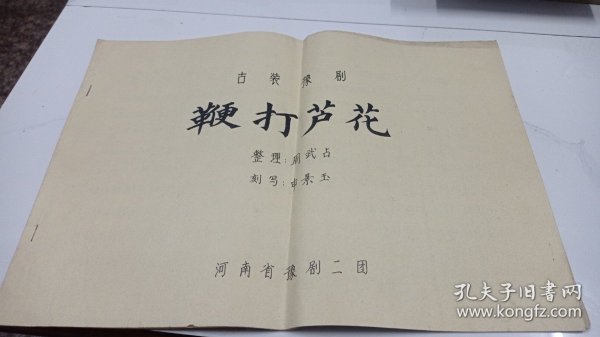 古装豫剧
鞭打芦花
整理：周武占
刻写：申景玉
河南省豫剧二团
孔夫子旧书网
www.kongfz.com